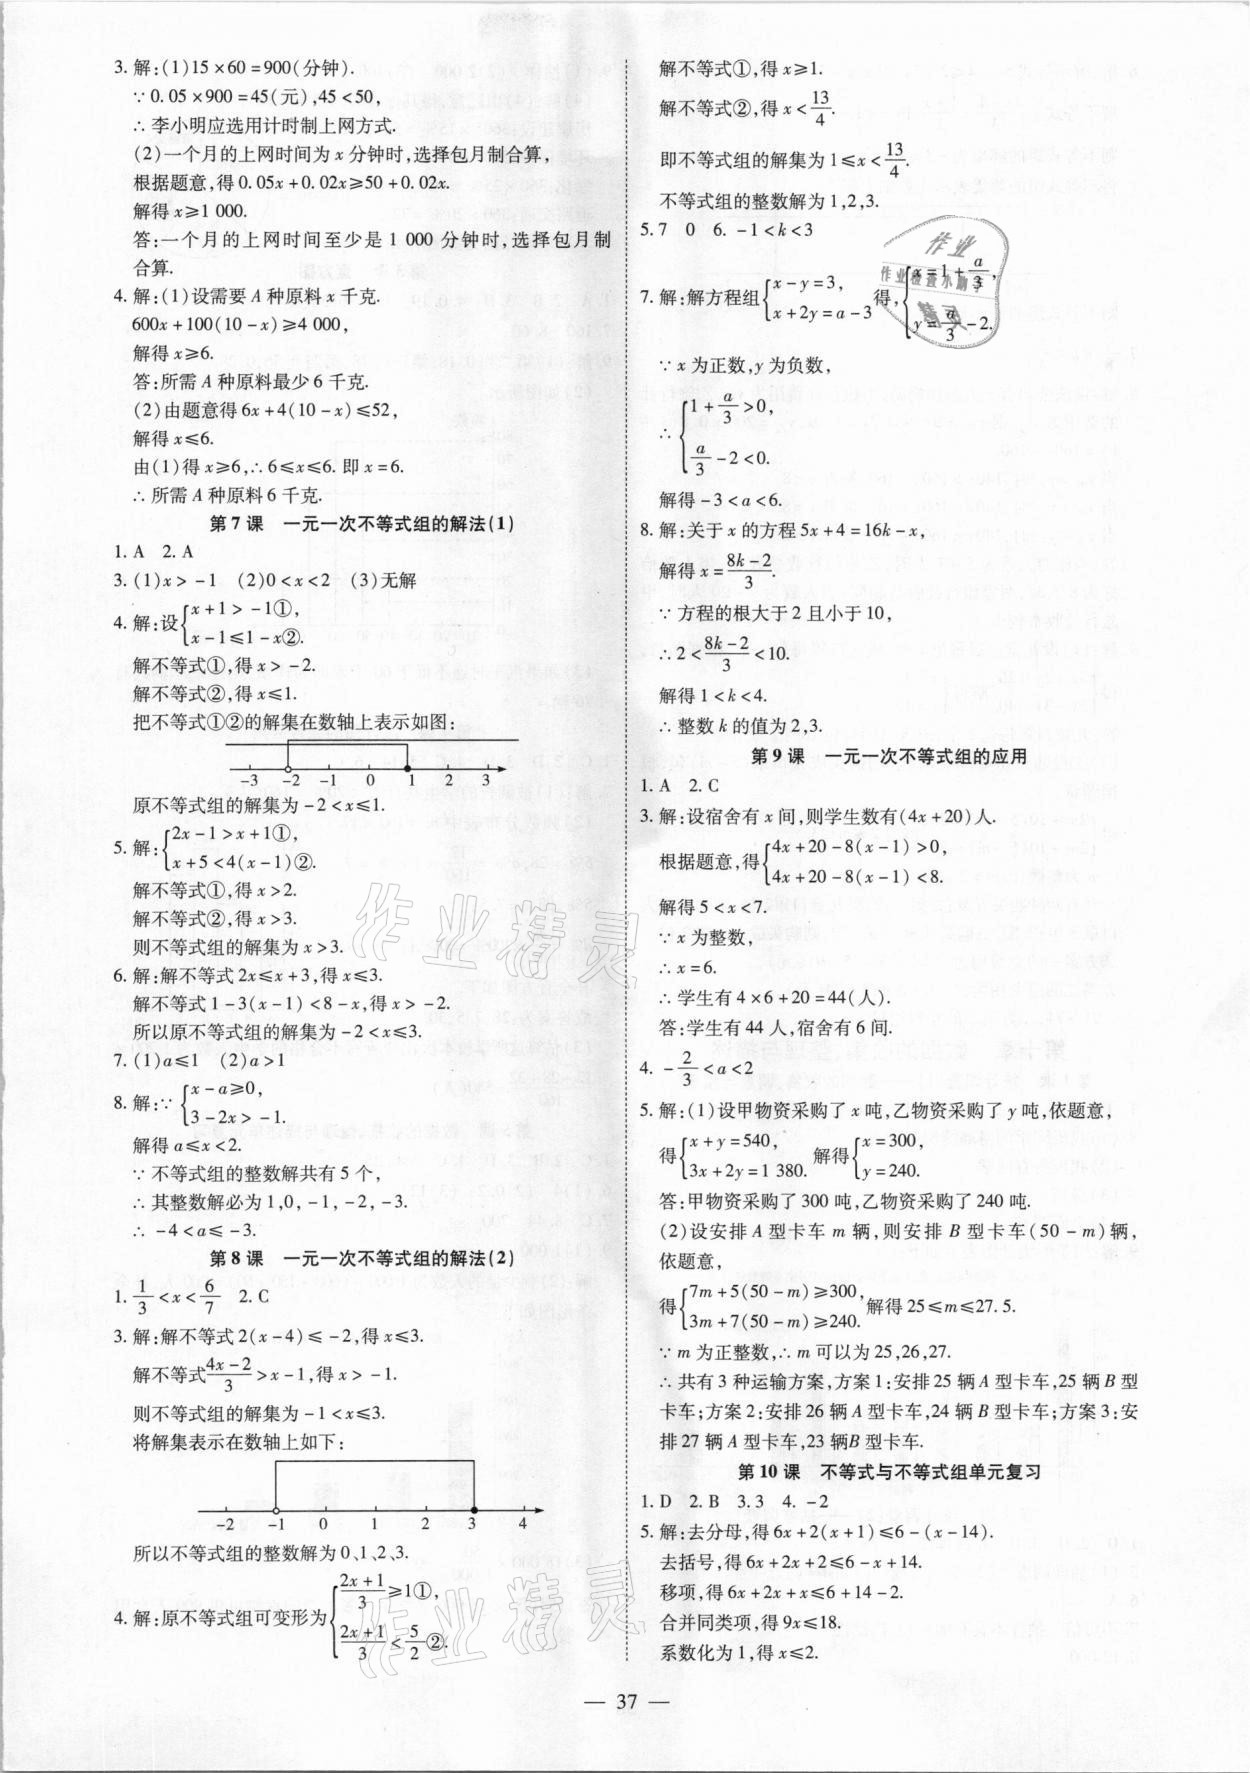 3. 解:(1)15×60=900(分钟).
∵0.05×900=45(元),45<50,
∴李小明应选用计时制上网方式.
(2)一个月的上网时间为x分钟时,选择包月制合算,
根据题意,得0.05x+0.02x≥50+0.02x.
解得x≥1 000.
答:一个月的上网时间至少是 1 000 分钟时,选择包月制
合算.
4. 解:(1)设需要A种原料x千克.
600x+100(10-x)≥4 000,
解得x≥6.
答:所需A种原料最少6千克.
(2)由题意得6x+4(10-x)≤52,
解得x≤6.
由(1)得x≥6,∴6≤x≤6. 即x=6.
∴所需A种原料6千克.
第7课 一元一次不等式组的解法(1)
1. A 2. A
3. (1)x>-1 (2)0<x<2 (3)无解
4. 解:设{x+1>-1①,
x-1≤1-x②.
解不等式①,得x>-2.
解不等式②,得x≤1.
把不等式①②的解集在数轴上表示如图:
-3 -2 -1 0 1 2 3
原不等式组的解集为-2<x≤1.
5. 解:{2x-1>x+1①,
x+5<4(x-1)②.
解不等式①,得x>2.
解不等式②,得x>3.
则不等式组的解集为x>3.
6. 解:解不等式2x≤x+3,得x≤3.
解不等式1-3(x-1)<8-x,得x>-2.
所以原不等式组的解集为-2<x≤3.
7. (1)a≤1 (2)a>1
8. 解:∵{x-a≥0,
3-2x>-1.
解得a≤x<2.
∵不等式组的整数解共有5个,
∴其整数解必为1,0,-1,-2,-3.
∴-4<a≤-3.
第8课 一元一次不等式组的解法(2)
1. 1/3<x<6/7 2. C
3. 解:解不等式2(x-4)≤-2,得x≤3.
解不等式(4x-2)/3>x-1,得x>-1.
则不等式组的解集为-1<x≤3.
将解集表示在数轴上如下:
-2 -1 0 1 2 3 4
所以不等式组的整数解为0、1、2、3.
4. 解:原不等式组可变形为{(2x+1)/3≥1①,
(2x+1)/3<5/2②.
解不等式①,得x≥1.
解不等式②,得x<13/4.
即不等式组的解集为1≤x<13/4.
不等式组的整数解为1,2,3.
5. 7 0 6. -1<k<3
7. 解:解方程组{x-y=3,
x+2y=a-3
得,{x=1+a/3,
y=a/3-2.
作业
作业检查小助手
精灵
∵x为正数,y为负数,
∴{1+a/3>0,
a/3-2<0.
解得-3<a<6.
8. 解:关于x的方程5x+4=16k-x,
解得x=(8k-2)/3.
∵方程的根大于2且小于10,
∴2<(8k-2)/3<10.
解得1<k<4.
∴整数k的值为2,3.
第9课 一元一次不等式组的应用
1. A 2. C
3. 解:设宿舍有x间,则学生数有(4x+20)人.
根据题意,得{4x+20-8(x-1)>0,
4x+20-8(x-1)<8.
解得5<x<7.
∵x为整数,
∴x=6.
∴学生有4×6+20=44(人).
答:学生有44人,宿舍有6间.
4. -2/3<a<2
5. 解:(1)设甲物资采购了x吨,乙物资采购了y吨,依题意,
得{x+y=540,
3x+2y=1 380.
解得{x=300,
y=240.
答:甲物资采购了300吨,乙物资采购了240吨.
(2)设安排A型卡车m辆,则安排B型卡车(50-m)辆,
依题意,
得{7m+5(50-m)≥300,
3m+7(50-m)≥240.
解得25≤m≤27.5.
∵m为正整数,∴m可以为25,26,27.
∴共有3种运输方案,方案1:安排25辆A型卡车,25辆B型
卡车;方案2:安排26辆A型卡车,24辆B型卡车;方案3:安
排27辆A型卡车,23辆B型卡车.
第10课 不等式与不等式组单元复习
1. D 2. B 3. 3 4. -2
5. 解:去分母,得6x+2(x+1)≤6-(x-14).
去括号,得6x+2x+2≤6-x+14.
移项,得6x+2x+x≤6+14-2.
合并同类项,得9x≤18.
系数化为1,得x≤2.
作业精灵
作业精灵
— 37 —